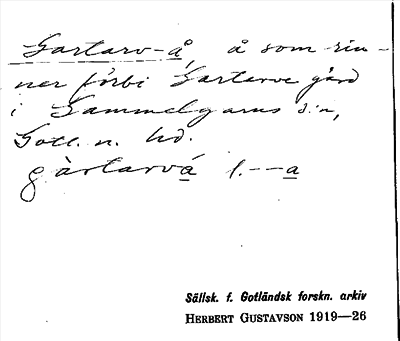 Gartarv-å, å som rin-
ner förbi Gartarve gård
i Gammelgarns s:n,
Gotl. n. hd.
gàrtarvá l. --a
Sällsk. f. Gotländsk forskn. arkiv
HERBERT GUSTAVSON 1919—26